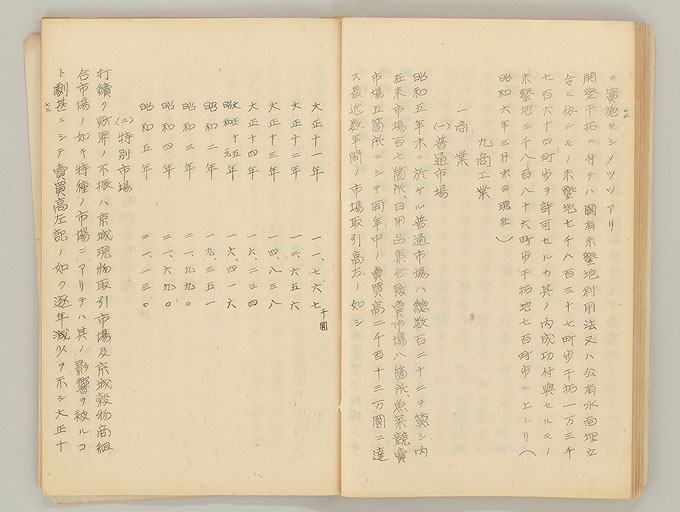 ニ實施セシメツツアリ
開墾干拓ニ付テハ國有未墾地利用法又ハ公有水面埋立
令ニ依ルモノ未墾地七千八百三十七町歩干拓一万三千
七百六十四町歩ヲ許可セルカ其ノ内成功付與セルモノ
未墾地三千八百八十六町歩干拓地七百町歩ニ上レリ(
昭和六年三月末日現在)
九商工業
一商業
(一)普通市場
昭和五年末ニ於ケル普通市場ハ總数百二十二ヲ算シ内
在来市場百七箇所日用品集合販賣市場八箇所、魚菜競賣
市場五箇所ニシテ同年中ノ賣買高二千百十三万圓ニ達
ス最近数年間ノ市場取引高左ノ如シ
大正十一年 一一、七六七千圓
大正十二年 一二、六五六
大正十三年 一四、八三八
大正十四年 一六、二三四
昭和元年 一六、四一六
昭和二年 一九、三五一
昭和三年 二一、九九〇
昭和四年 二一、六九〇
昭和五年 二一、一三〇
(二)特別市場
打續ク財界ノ不振ハ京城現物取引市場及京城穀物商組
合市場ノ如キ特種ノ市場ニアリテハ其ノ影響ヲ被ルコ
ト劇甚ニシテ賣買高左記ノ如ク逐年減少ヲ示シ大正十